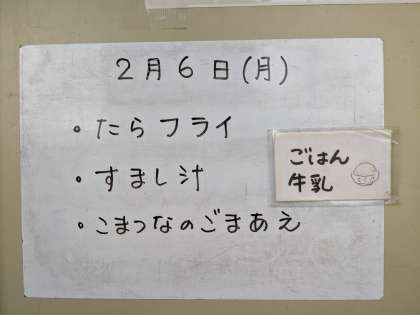 2月6日(月)
・たらフライ
・すまし汁
・こまつなのごまあえ
ごはん
牛乳